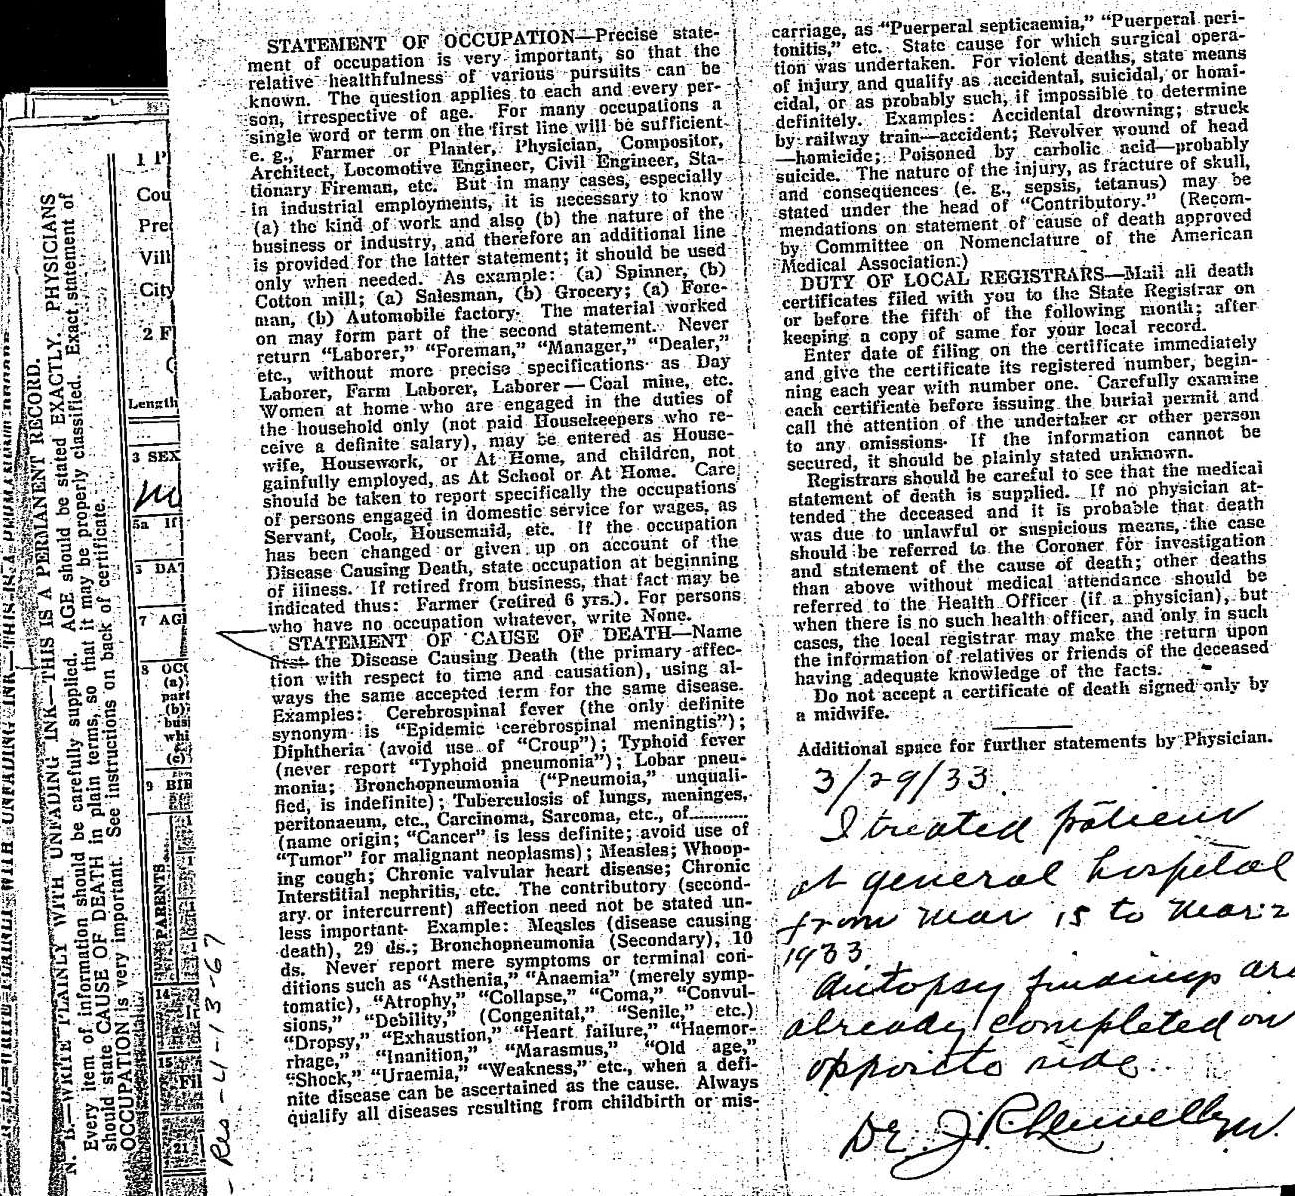 STATEMENT OF OCCUPATION—Precise state-
ment of occupation is very important, so that the
relative healthfulness of various pursuits can be
known. The question applies to each and every per-
son, irrespective of age. For many occupations a
single word or term on the first line will be sufficient
e. g., Farmer or Planter, Physician, Compositor,
Architect, Locomotive Engineer, Civil Engineer, Sta-
tionary Fireman, etc. But in many cases, especially
in industrial employments, it is necessary to know
(a) the kind of work and also (b) the nature of the
business or industry, and therefore an additional line
is provided for the latter statement; it should be used
only when needed. As example: (a) Spinner, (b)
Cotton mill; (a) Salesman, (b) Grocery; (a) Fore-
man, (b) Automobile factory. The material worked
on may form part of the second statement. Never
return "Laborer," "Foreman," "Manager," "Dealer,"
etc., without more precise specifications as Day
Laborer, Farm Laborer, Laborer—Coal mine, etc.
Women at home who are engaged in the duties of
the household only (not paid Housekeepers who re-
ceive a definite salary), may be entered as House-
wife, Housework, or At Home, and children, not
gainfully employed, as At School or At Home. Care
should be taken to report specifically the occupations
of persons engaged in domestic service for wages, as
Servant, Cook, Housemaid, etc. If the occupation
has been changed or given up on account of the
Disease Causing Death, state occupation at beginning
of illness. If retired from business, that fact may be
indicated thus: Farmer (retired 6 yrs.). For persons
who have no occupation whatever, write None.
STATEMENT OF CAUSE OF DEATH—Name
first the Disease Causing Death (the primary affec-
tion with respect to time and causation), using al-
ways the same accepted term for the same disease.
Examples: Cerebrospinal fever (the only definite
synonym is "Epidemic cerebrospinal meningtis");
Diphtheria (avoid use of "Croup"); Typhoid fever
(never report "Typhoid pneumonia"); Lobar pneu-
monia; Bronchopneumonia ("Pneumoia," unquali-
fied, is indefinite); Tuberculosis of lungs, meninges,
peritonaeum, etc., Carcinoma, Sarcoma, etc., of............
(name origin; "Cancer" is less definite; avoid use of
"Tumor" for malignant neoplasms); Measles; Whoop-
ing cough; Chronic valvular heart disease; Chronic
Interstitial nephritis, etc. The contributory (second-
ary or intercurrent) affection need not be stated un-
less important. Example: Measles (disease causing
death), 29 ds.; Bronchopneumonia (Secondary), 10
ds. Never report mere symptoms or terminal con-
ditions such as "Asthenia," "Anaemia" (merely symp-
tomatic), "Atrophy," "Collapse," "Coma," "Convul-
sions," "Debility," (Congenital," "Senile," etc.)
"Dropsy," "Exhaustion," "Heart failure," "Haemor-
rhage," "Inanition," "Marasmus," "Old age,"
"Shock," "Uraemia," "Weakness," etc., when a defi-
nite disease can be ascertained as the cause. Always
qualify all diseases resulting from childbirth or mis-
carriage, as "Puerperal septicaemia," "Puerperal peri-
tonitis," etc. State cause for which surgical opera-
tion was undertaken. For violent deaths, state means
of injury and qualify as accidental, suicidal, or homi-
cidal, or as probably such, if impossible to determine
definitely. Examples: Accidental drowning; struck
by railway train—accident; Revolver wound of head
—homicide; Poisoned by carbolic acid—probably
suicide. The nature of the injury, as fracture of skull,
and consequences (e. g., sepsis, tetanus) may be
stated under the head of "Contributory." (Recom-
mendations on statement of cause of death approved
by Committee on Nomenclature of the American
Medical Association.)
DUTY OF LOCAL REGISTRARS—Mail all death
certificates filed with you to the State Registrar on
or before the fifth of the following month; after
keeping a copy of same for your local record.
Enter date of filing on the certificate immediately
and give the certificate its registered number, begin-
ning each year with number one. Carefully examine
each certificate before issuing the burial permit and
call the attention of the undertaker or other person
to any omissions. If the information cannot be
secured, it should be plainly stated unknown.
Registrars should be careful to see that the medical
statement of death is supplied. If no physician at-
tended the deceased and it is probable that death
was due to unlawful or suspicious means, the case
should be referred to the Coroner for investigation
and statement of the cause of death; other deaths
than above without medical attendance should be
referred to the Health Officer (if a physician), but
when there is no such health officer, and only in such
cases, the local registrar may make the return upon
the information of relatives or friends of the deceased
having adequate knowledge of the facts.
Do not accept a certificate of death signed only by
a midwife.
Additional space for further statements by Physician.
3/29/33
I treated patient
at general hospital
from Mar 15 to Mar 2
1933
Autopsy findings are
already completed on
opposite side.
Dr. J. R. Llewellyn.
N. B.—WRITE PLAINLY WITH UNFADING INK—THIS IS A PERMANENT RECORD.
Every item of information should be carefully supplied. AGE should be stated EXACTLY. PHYSICIANS
should state CAUSE OF DEATH in plain terms, so that it may be properly classified. Exact statement of
OCCUPATION is very important. See instructions on back of certificate.
1 P
Cou
Pre
Vill
City
2 F
Length
3 SEX
M
5a If
DAT
7 AG
8 OCC
(a)
part
(b)
busi
whi
(c)
9 BIR
PARENTS
14
15
Fil
Res -4-13-67